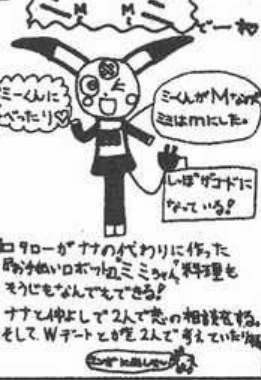 M M
でーㇲ
ミーくんに
べったり♡
ミーくんがMなので
ミミはmにした。
しっぽがコードに
なっている!
コタローがナナの代わりに作った
お手伝いロボットのミミちゃん 料理も
そうじもなんでもできる!
ナナと仲よしで2人で恋の相談をする。
そして Wデートとかを2人で考えていたり